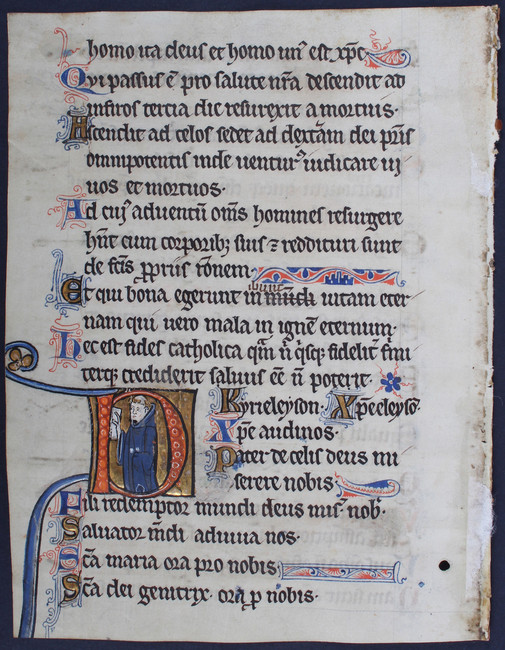 homo ita deus et homo un᾽ est xp̄c·
Qui passus ē pro salute nr̄a descendit ad
inferos tercia die resurexit a mortuis·
Ascendit ad celos sedet ad dext̄am dei pr̄is
omnipotentis inde uentur᾽ iudicare ui
uos et mortuos·
Ad cui᾽ aduentū om̄s homines resurgere
hn̄t cum corporibꝫ suis ⁊ reddituri sunt
de fc̄is ꝓpriis rōnem
ibunt
Et qui bona egerunt in uitam eter
nam qui uero mala in ignē eternum·
hec est fides catholica qm̄ n̄ qͥsqꝫ fidelit᾽ firmi
terqꝫ crediderit saluus eē n̄ poterit·
Kyrieleyson· Xp̄eleyso·
Xp̄e audi nos·
Pater de celis deus mi
serere nobis·
Fili redemptor mundi deus mis᾽ nob·
Saluator mūdi adiuua nos·
Sc̄a maria ora pro nobis·
Sc̄a dei genitrix· ora ꝓ nobis·